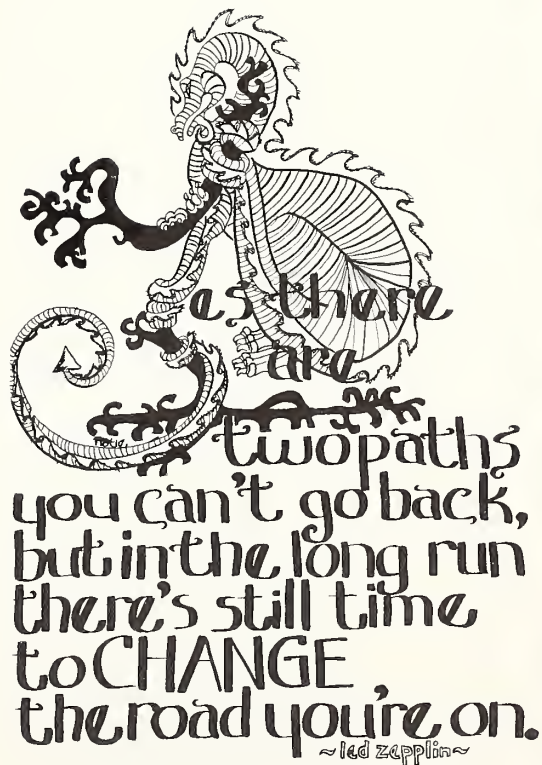 Yes there
are
two paths
you can't go back,
but in the long run
there's still time
to CHANGE
the road you're on.
~led zepplin~